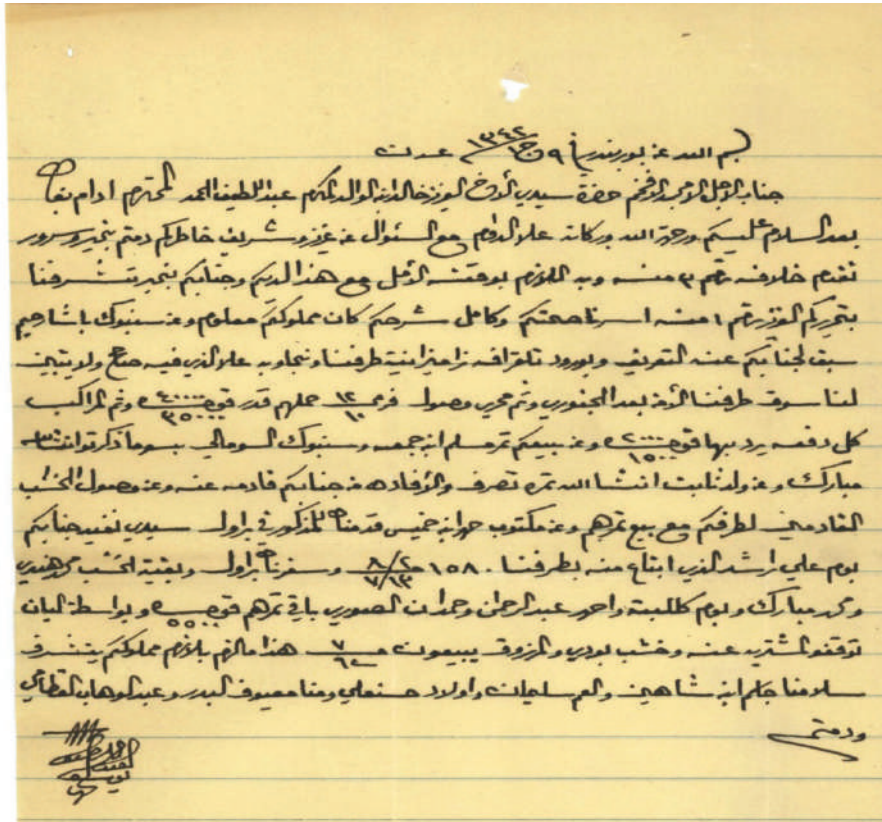 بسم الله من بوربندر في ٩ ج ١٣٤٢ عدن
جناب الاجل الامجد الافخم حضرة سيدي الأخ العزيز خالد ابن الوالد المكرم عبد اللطيف الحمد المحترم ادام بقاه
بعد السلام عليكم ورحمة الله وبركاته على الدوام مع السئوال عن عزيز وشريف خاطركم دمتم بخير وسرور
تقدم خلافه رقم ٣ منه وبه اللازم بوقته الأمل مع هذا لديكم وجنابكم بخير تشرفنا
بتحريركم العزيز رقم ١ منه اسرنا صحتكم وكامل شرحكم كان مملوككم معلوم وعن سنبوك باشا رحيم
سبق لجنابكم عنه التعريف وبورود تلغرافه نرا ميزانية طرفنا ونجاوبه على الذي فيه صالح ولا يتبين
لنا سوق طرفنا الأن بعد الجنوري وثم تحرير وصول حملهم قدر قوصره ٤٠٠٠٠ ٣٥٠٠٠ وثم المراكب
كل دفعه يرد بها قوصره ٢٠٠٠ ١٥٠٠ وعن بيعكم تمر مسلم ابن جمعه وسنبوك السومالي بسوما ذكرتوا انشاء الله
مبارك وعن ولد ثابت انشا الله تمره تصرف والأفاده من جنابكم قادمه عنه وعن وصول الخشب
القادمين لطرفكم مع بيع تمرهم وعن مكتوب ابن خميس قدمناه للمذكور في براول سيدي نفيد جنابكم
بوم علي راشد الذي ابتاع منه بطرفنا ١٥٨٠ ٨/٢ ٧/١٣ وسفرناه براول وبقية الخشب محمد هندي
ومحمد مبارك وبوم كالبته واحمد عبد الرحمن وحمدان الصوري باقي تمرهم قوصره ٥٥٠٠ وبواسطة اليان
توقفوا المشترين عنه وخشب بودي والمرزوق يبيعون هذا مالزم بلازم مملوككم يتشرف
سلامنا جاسم ابن شاهين والعم سليمان واولاد حسنعلي ومنا معيوف البدر وعبد الوهاب القطامي
ودمتم